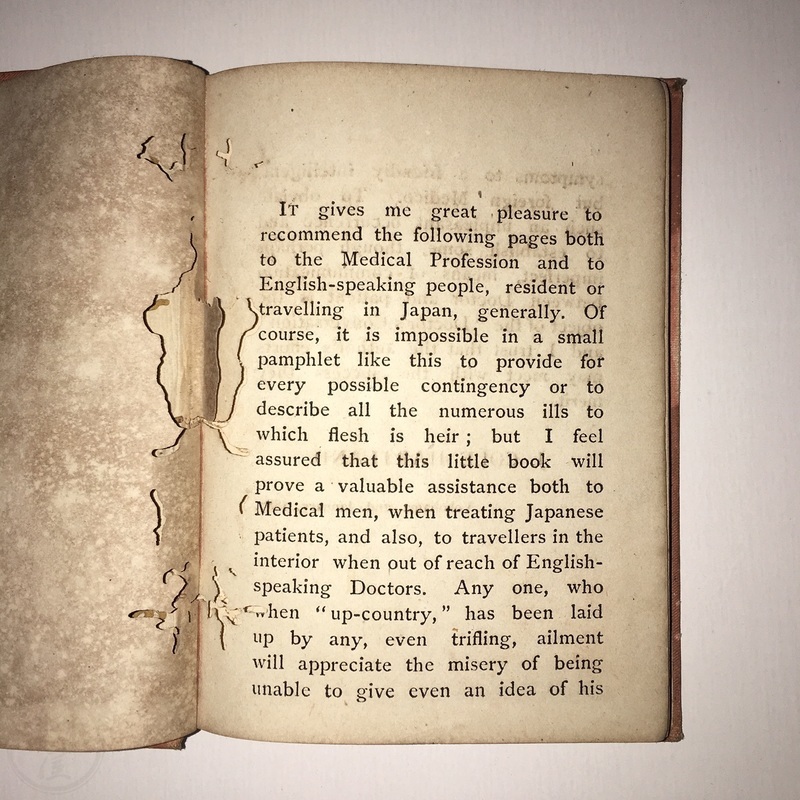 It gives me great pleasure to
recommend the following pages both
to the Medical Profession and to
English-speaking people, resident or
travelling in Japan, generally. Of
course, it is impossible in a small
pamphlet like this to provide for
every possible contingency or to
describe all the numerous ills to
which flesh is heir; but I feel
assured that this little book will
prove a valuable assistance both to
Medical men, when treating Japanese
patients, and also, to travellers in the
interior when out of reach of English-
speaking Doctors. Any one, who
when “up-country,” has been laid
up by any, even trifling, ailment
will appreciate the misery of being
unable to give even an idea of his